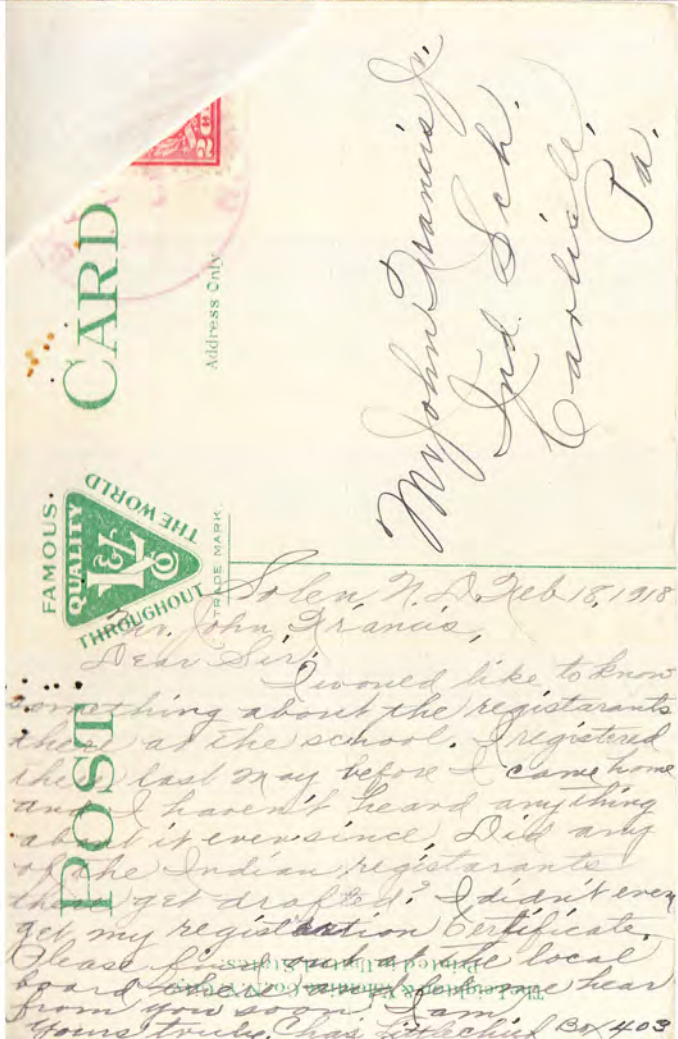 POST CARD
FAMOUS
QUALITY
THROUGHOUT THE WORLD
L & V Co
TRADE MARK.
Address Only
Mr John Francis Jr.
Ind. Sch.
Carlisle,
Pa.
Solen, N. D. Feb 18, 1918
Mr. John Francis,
Dear Sir,
I woued like to know
something about the registarants
there at the school. I registered
there last May before I came home
and I haven't heard anything
about it ever since, Did any
of the Indian registarants
there get drafted? I didn't even
get my registration Certificate.
Please find out at the local
board there and let me hear
from you soon. I am
Yours truly, Chas Littlechief Box 403
The Leighton & Valentine Co. N.Y. City.
Printed in United States.